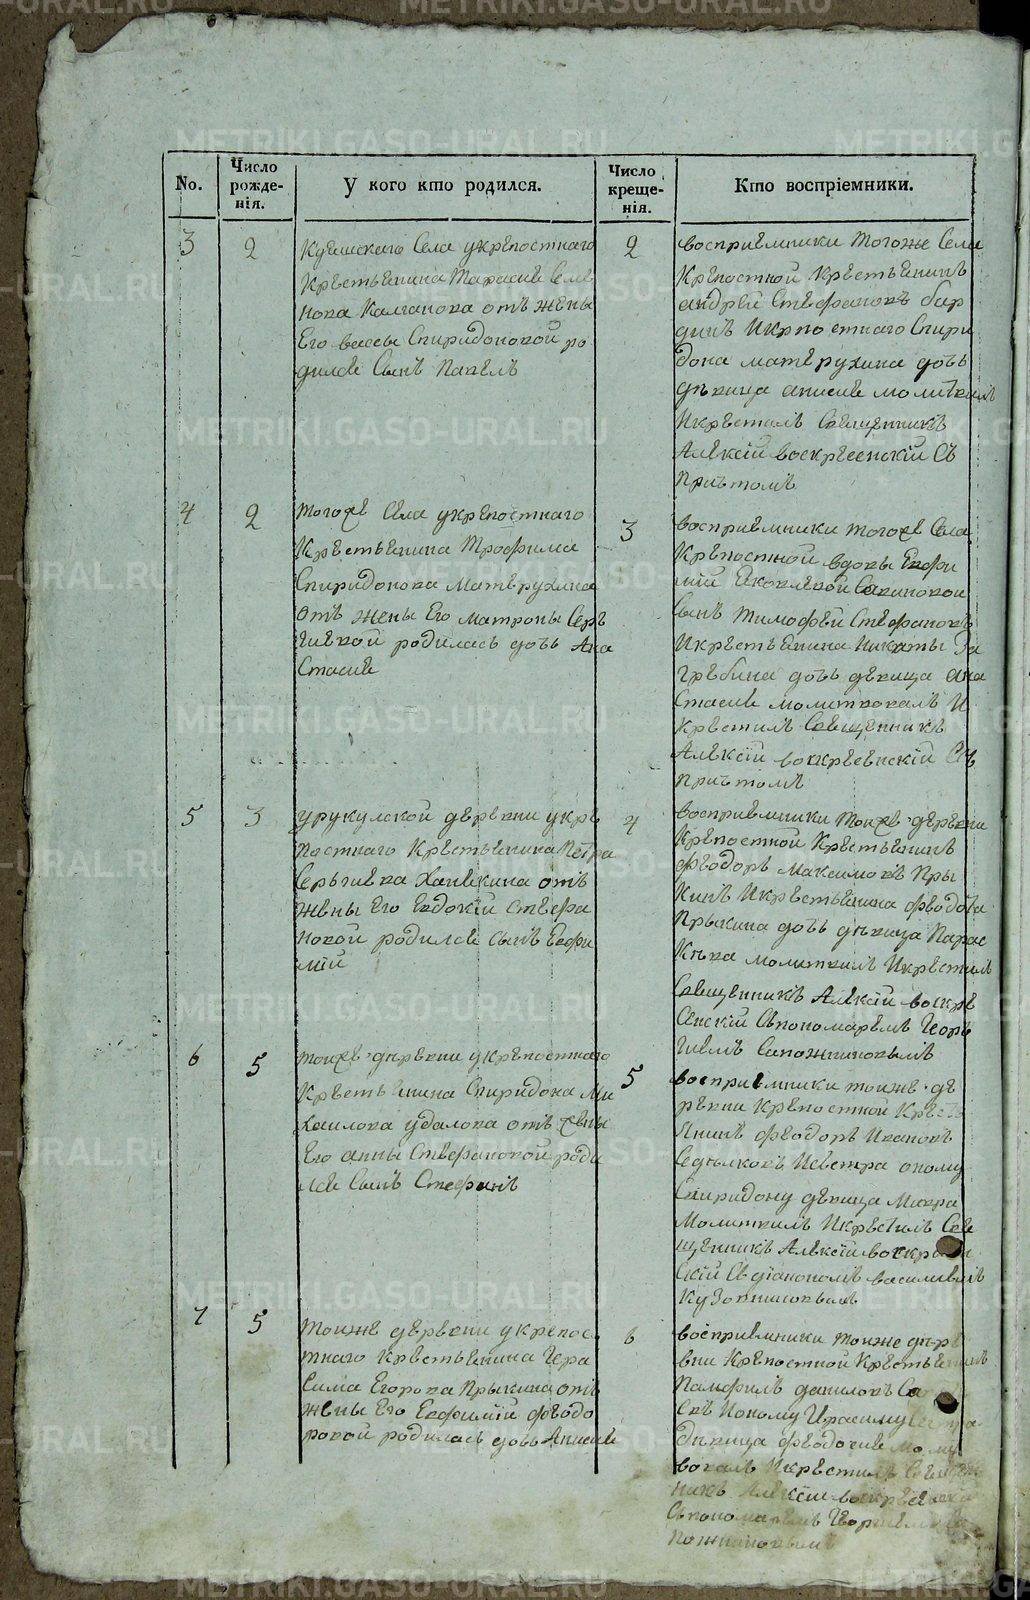 No.
Число рожде-нія.
У кого кто родился.
Число креще-нія.
Кто воспріемники.
3
2
Куяшскаго Села укрепостнаго
Крестьянина Тарасия Семе
нова Калганова отъ жены
Его вассы Спиридоновой ро
дился Сынъ Павелъ
2
восприемники тогоже Села
Крепостной крестьянинъ
андрей Стефановъ бар
динъ Икрпостнаго Спири
дона матерухина дочь
девица анисия молитвилъ
Икрестилъ Священникъ
Алексiй воскресенскiй Съ
Причтомъ
4
2
тогоже Села укрепостнаго
Крестьянина Трофима
Спиридонова Матерухина
отъ жены Его матроны Серг
гиевой родилась дочь Ана
Стасия
3
восприемники тогоже Села
Крепостной вдовы Евфи
мiи Яковлевой Савиновой
Сынъ Тимофей Стефановъ
Икрестьянина Никиты За
гребина дочь девица Ана
Стасия молитвовалъ И
Крестилъ Священникъ
Алексiй воскресенскiй Съ
Причтомъ
5
3
урукулской деревни укре
постнаго Крестьянина Петра
Сергиева Ханякина отъ
жены Его Евдокiи Стефа
новой родился сынъ Евфи
мiй
4
восприемники тоиже деревни
Крепостной Крестьянинъ
феодоръ Максимовъ Пры
кинъ Икрестьянина феодота
Прыкина дочь девица Парас
Кева молитвилъ Икрестилъ
Священникъ Алексiй воскре
Сенскiй Спономаремъ Георг
гиемъ Сапожниковымъ
6
5
тоиже деревни укрепостнаго
Крестьянина Спиридона Ми
хаилова удалова отъ жены
Его анны Стефановой роди
лся Сынъ Стефанъ
5
восприемники тоиже де
ревни Крепостной Кресть
Янинъ феодоръ Ивановъ
Седелковъ Исестра оному
Спиридону девица Мавра
Молитвилъ Икрестилъ Свя
щенникъ Алексiй воскресен
Скiй Съ дiакономъ василиемъ
Кузовниковымъ
7
5
тоиже деревни укрепос
тнаго крестьянина Гера
Сима Егорова Прыкина отъ
жены Его Евфимiи феодо
ровой родилась дочь Анисия
6
восприемники тоиже дере
вни Крепостной Крестьянинъ
Памфилъ даниловъ
девица феодосия
вовалъ Икрестилъ Священ
никъ Алексiй воскресенскiй
Спономаремъ Георгиемъ Са
пожниковымъ
METRIKI.GASO-URAL.RU